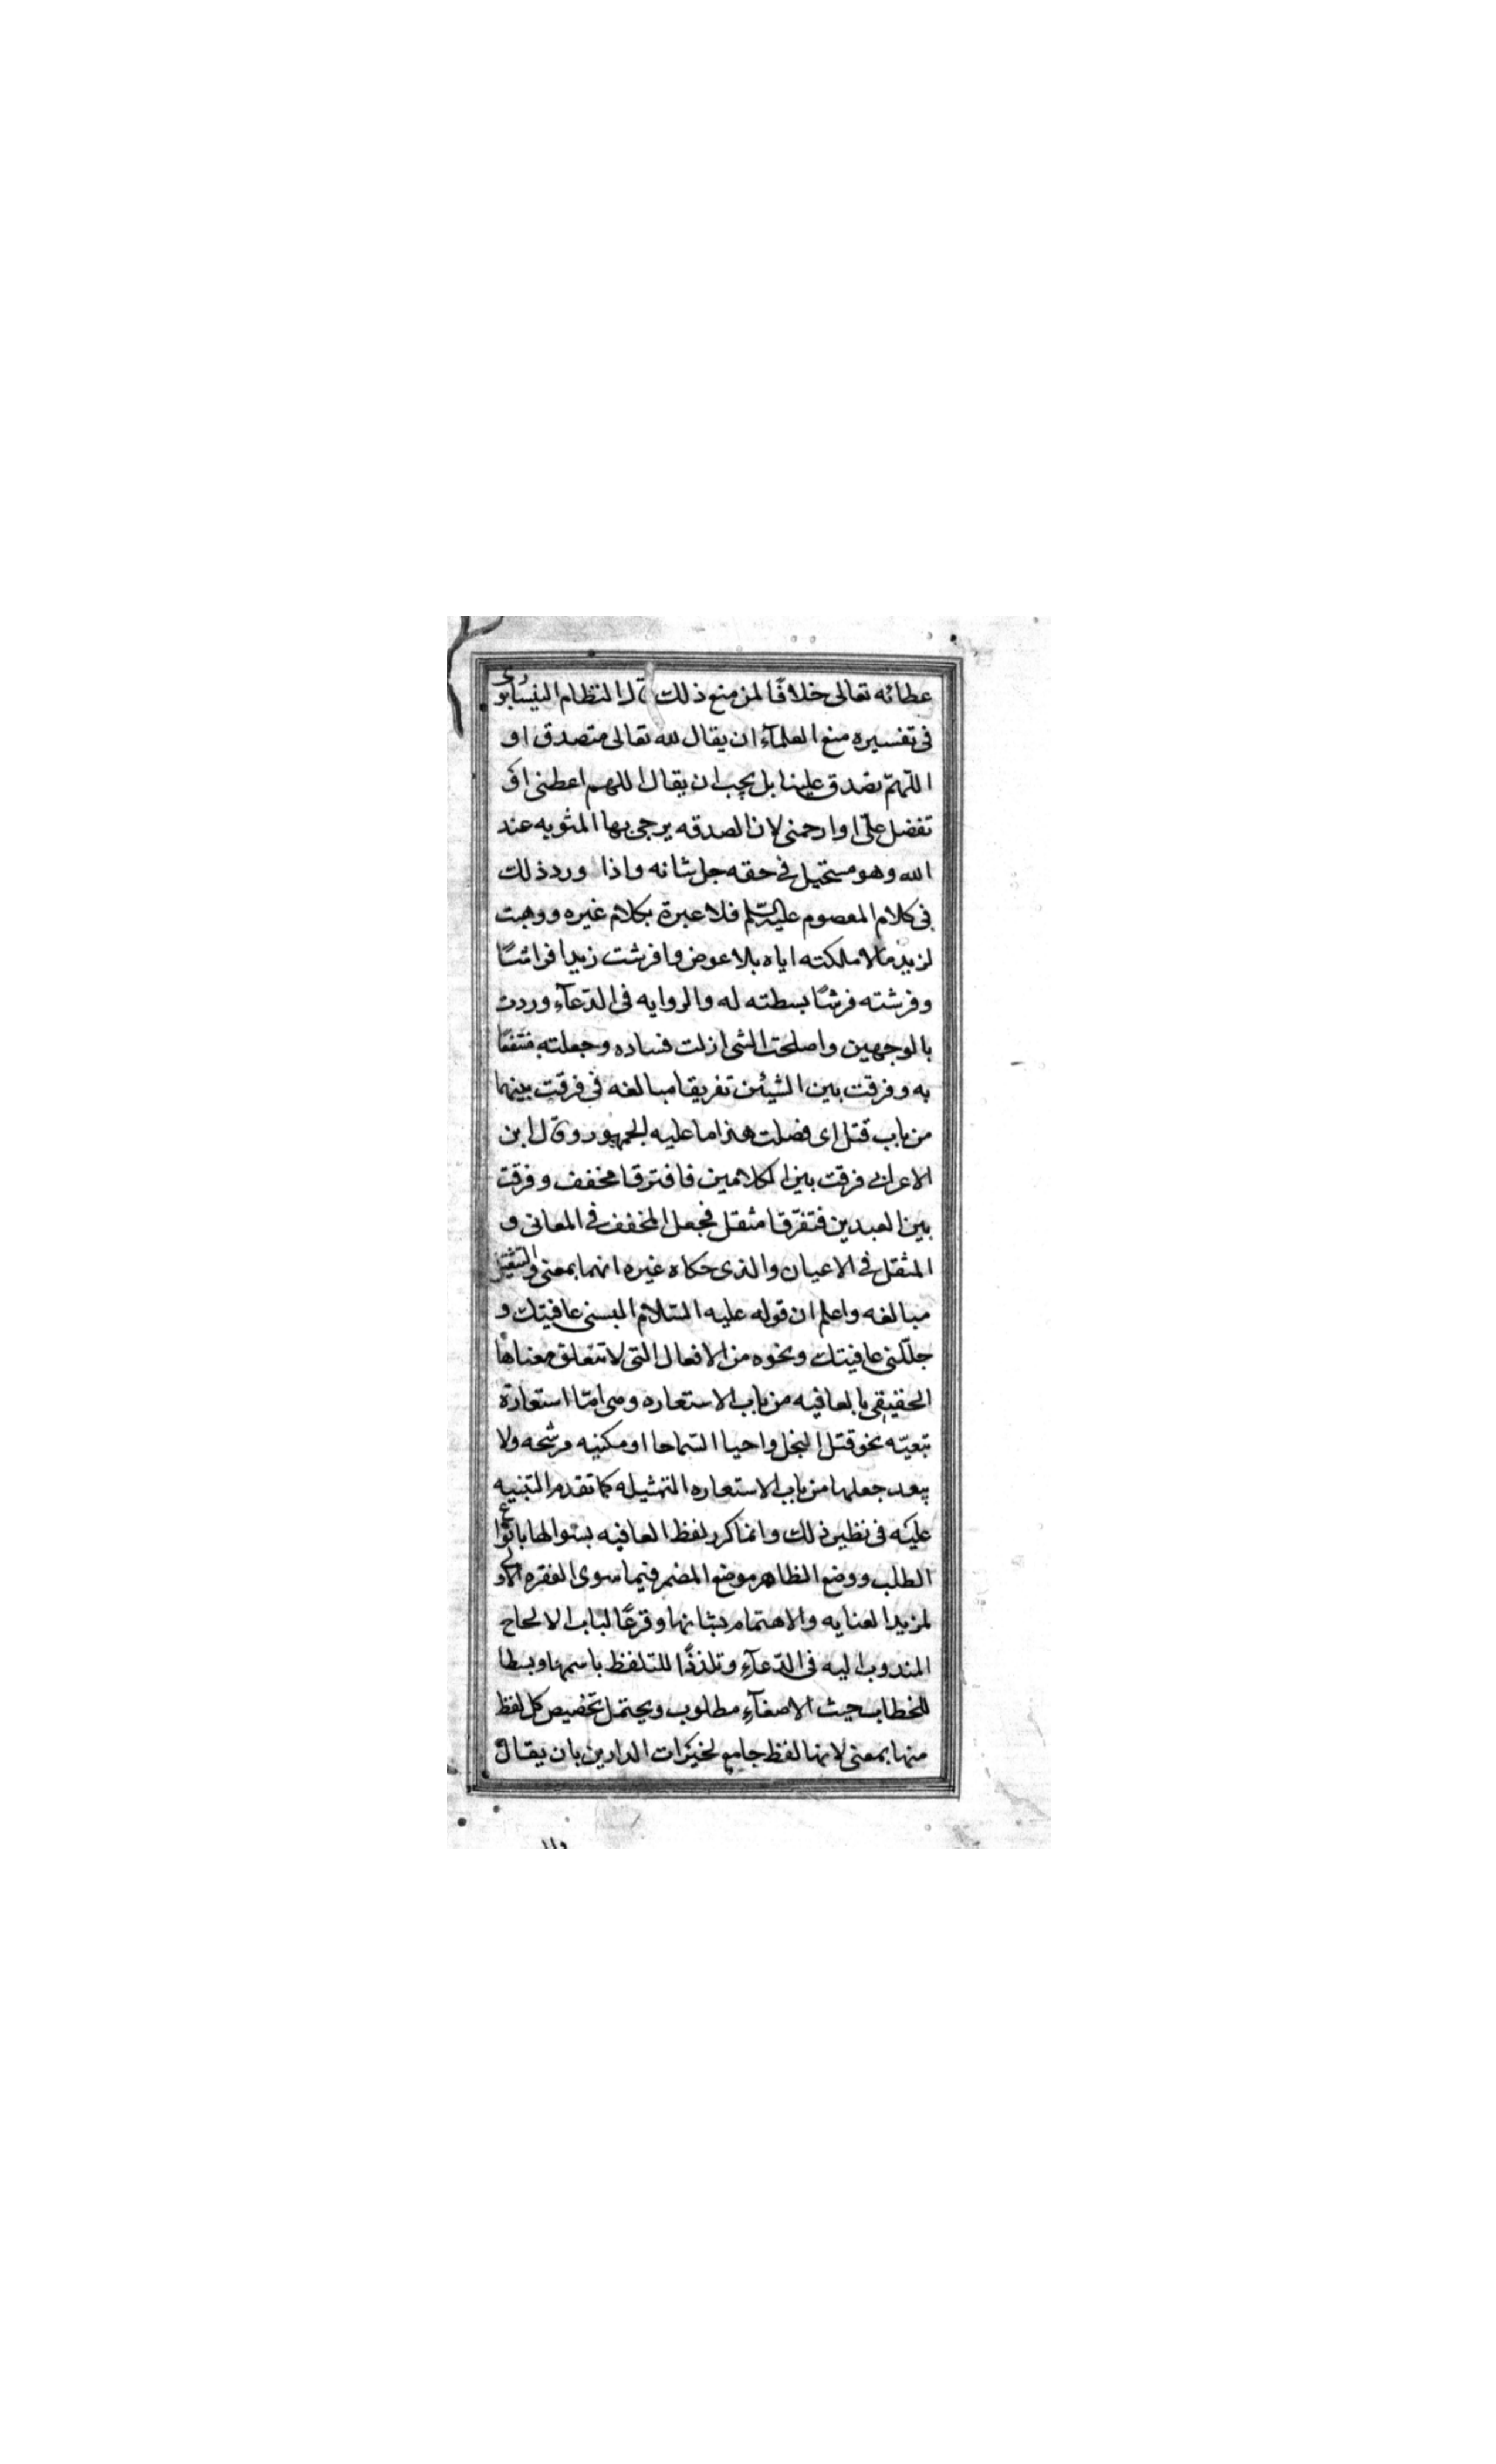 عطائه تعالى خلافًا لمن منع ذلك قال النظام النيسابورى
فى تفسيره منع العلمآء ان يقال لله تعالى متصدق او
اللّهمّ تصدق علينا بل يجب ان يقال اللهم اعطنى او
تفضل علىّ او ارحمنى لان الصدقه يرجى بها المثوبه عند
الله وهو مستحيل فى حقه جل شانه واذا ورد ذلك
فى كلام المعصوم عليه السّلم فلا عبرة بكلام غيره ووهبت
لزيد مالا ملكته اياه بلا عوض وافرشت زيدا فراشًا
وفرشته فرشًا بسطته له والروايه فى الدّعآء وردت
بالوجهين واصلحت الشى ازلت فساده وجعلته منتفعًا
به وفرقت بين الشيئن تفريقا مبالغه فى فرقت بينهما
من باب قتل اى فصلت هذا ما عليه الجمهور وقال ابن
الاعرابى فرقت بين الكلامين فافترقا مخفف وفرقت
بين العبدين فتفرّقا مثقل فجعل المخفف فى المعانى و
المثقل فى الاعيان والذى حكاه غيره انهما بمعنى والتثقيل
مبالغه واعلم ان قوله عليه السّلام البسنى عافيتك و
جلّلنى عافيتك ونحوه من الافعال التى لا تتعلق معناها
الحقيقى بالعافيه من باب الاستعاره وهى امّا استعارة
تبعيّه نحو قتل البخل واحيا السّماحا او مكنيه مرشحه ولا
يبعد جعلها من باب الاستعاره التمثيله كما تقدم التنبيه
عليه فى نظير ذلك وانما كرر لفظ العافيه بسوالها بانواع
الطلب ووضع الظاهر موضع المضمر فيما سوى الفقره الاولى
لمزيد العنايه والاهتمام بشانها وقرعًا لباب الالحاح
المندوب اليه فى الدّعآء وتلذذًا للتلفظ باسمها وبسطا
للخطاب حيث الاصغآء مطلوب ويحتمل تخصيص كل لفظ
منها بمعنى لانها لفظ جامع لخيرات الدارين بان يقال